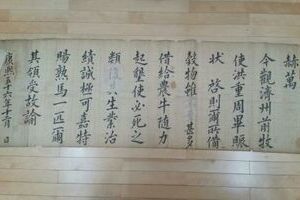 赫萬
今觀濟州前牧
使洪重周畢賑
狀 啓則爾所備
穀物雖 甚多
借給農牛隨力
起墾使必死之
類 生業治
績誠極可嘉特
賜熟馬一匹爾
其領受故諭
康熙五十六年十一月 日